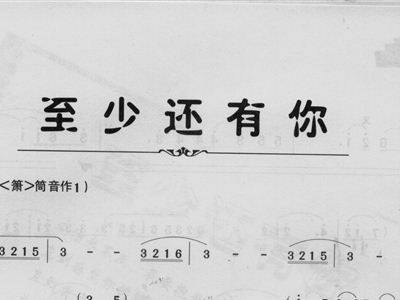 至少还有你
<箫>筒音作1)
3215 | 3 - - 3216 | 3 - - 3215 | 3
(3 5